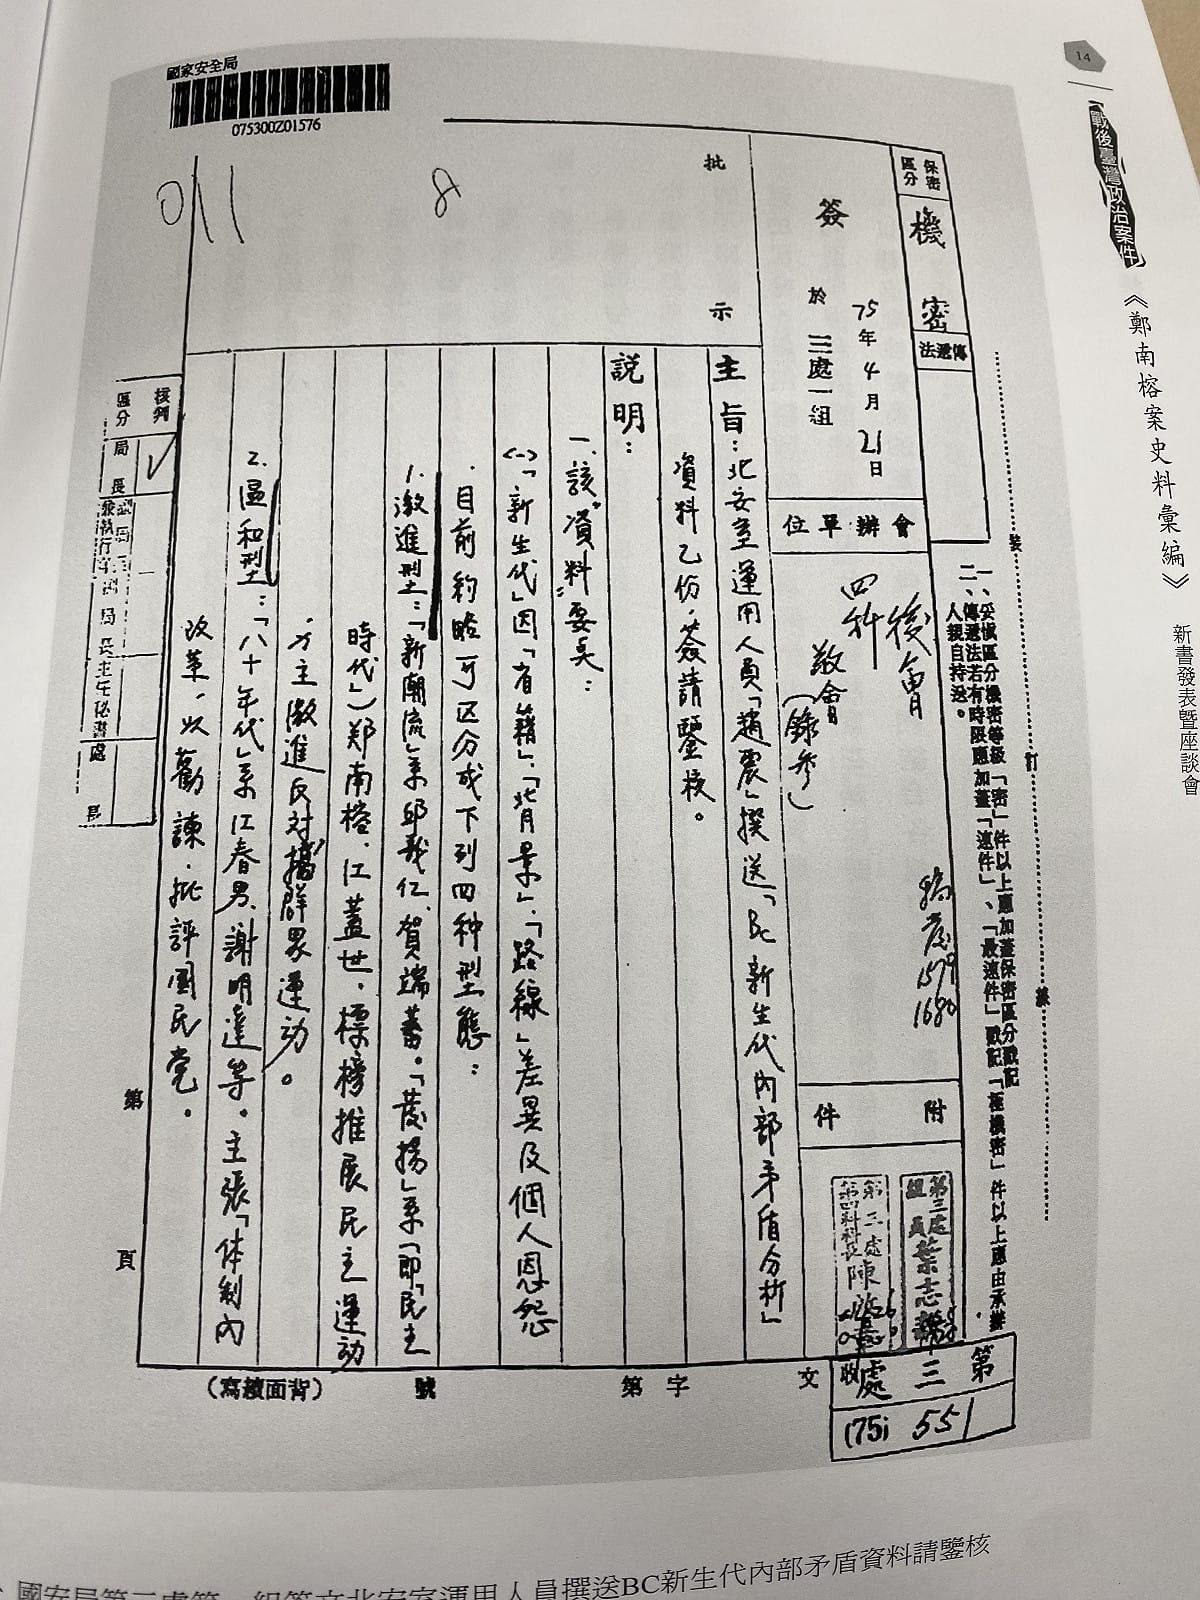 14
戰後臺灣政治案件
《鄭南榕案史料彙編》
新書發表暨座談會
國家安全局
075300Z01576
011
8
保密區分
機密
傳遞法
一、妥慎區分機密等級「密」件以上應加蓋保密區分戳記
二、傳遞法若有時限應加蓋「速件」、「最速件」戳記「極機密」件以上應由承辦
人親自持送。
裝
訂
線
簽
75年4月21日
於
三處一組
會辦單位
後會
四科
敬會
(錄參)
1579
1680
附件
第三處
組員葉志
第三處
第四科科長陳
批示
主旨：北安室運用人員「趙震」撰送「BC新生代內部矛盾分析」
資料乙份，簽請鑒核。
說明：
一、該「資料」要点：
(一)「新生代」因「省籍」、「背景」、「路線」差異及個人恩怨
目前約略可区分成下列四种型態：
1.激進型：「新潮流」系邱義仁、賀端蕃。「蓬揚」系(即「民主
時代」)郑南榕、江蓋世，標榜推展民主運动
，力主激進反对，搞群眾運动。
2.溫和型：「八十年代」系江春男、謝明達等。主張「体制內
改革，以勸諫、批評國民党。
核判區分
局長
處
第
頁
(背面續寫)
號
第
字
文
收
第三處
(75)
551
國安局第三處第一組簽文北安室運用人員撰送BC新生代內部矛盾資料請鑒核